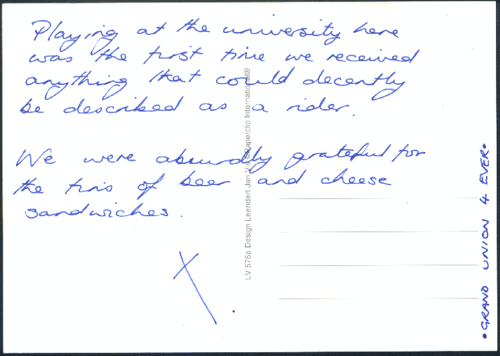 Playing at the university here
was the first time we received
anything that could decently
be described as a rider.
We were absurdly grateful for
the tins of beer and cheese
sandwiches.
X.
LV 576a Design Leendert Jan Vis Scapercilo International®
•GRAND UNION 4 EVER•